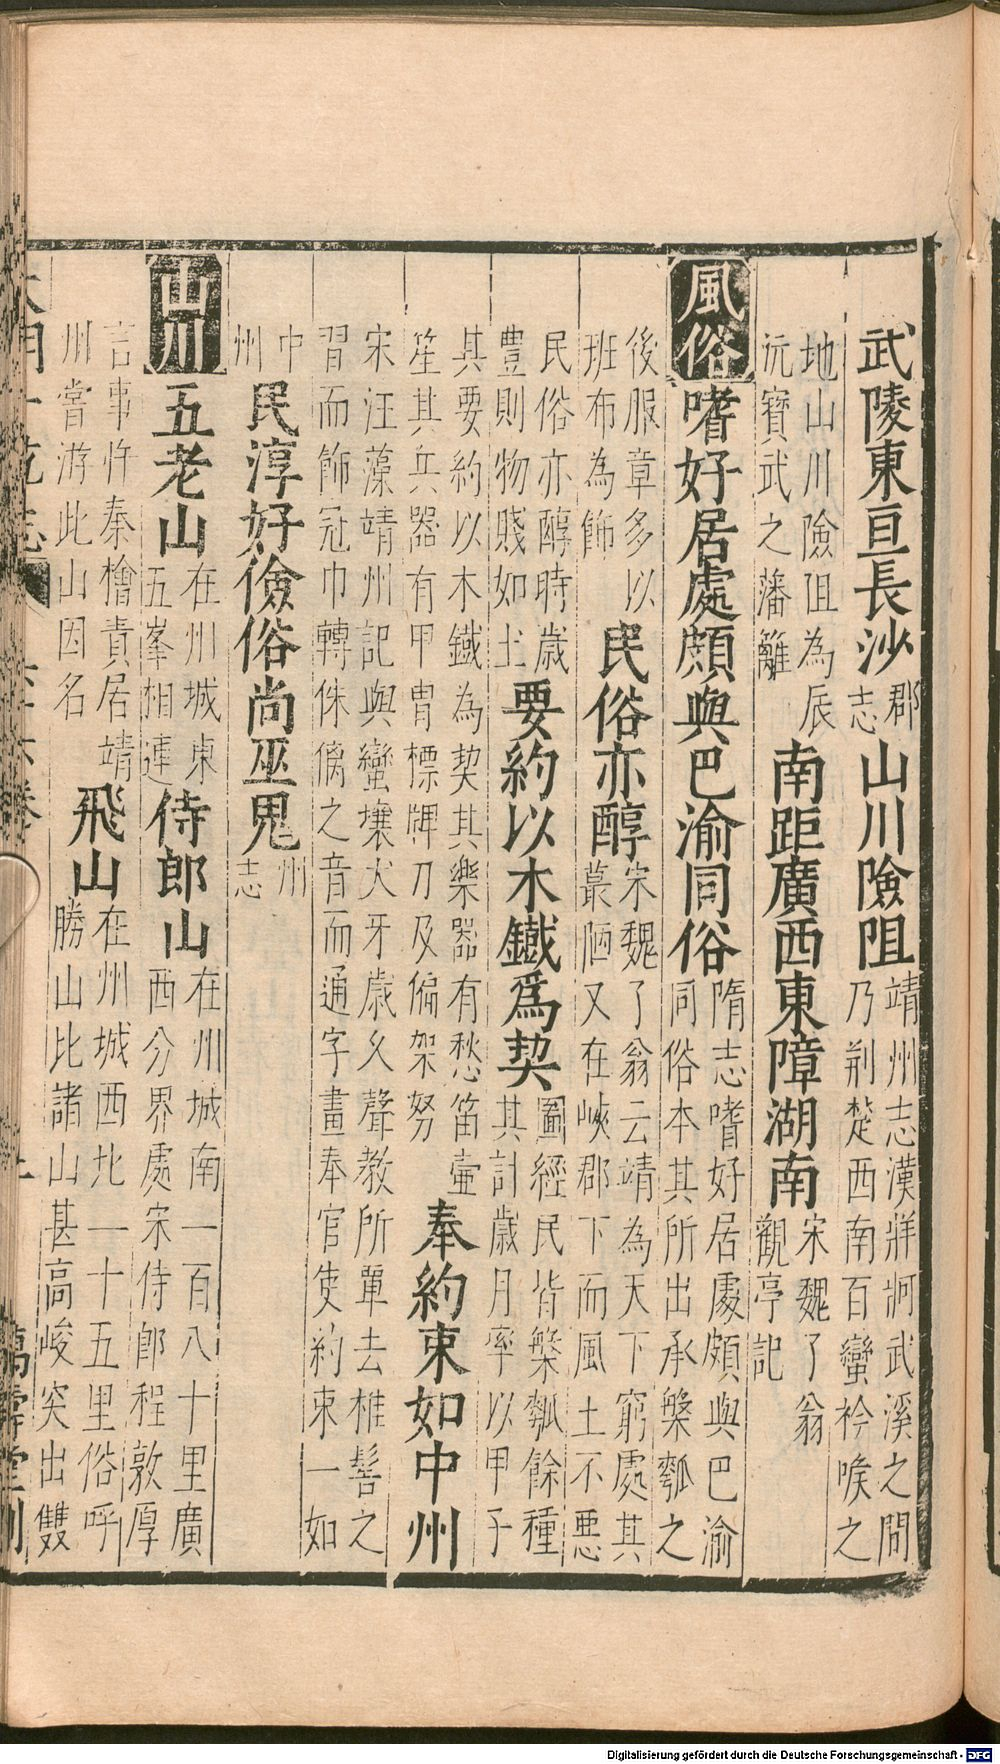 武陵東亘長沙郡志山川險阻靖州志漢牂牁武溪之間乃荆楚西南百蠻衿喉之
地山川險阻為辰沅寶武之藩籬南距廣西東障湖南宋魏了翁觀亭記
風俗嗜好居處頗與巴渝同俗隋志嗜好居處頗與巴渝同俗本其所出承槃瓠之
後服章多以班布為飾民俗亦醇宋魏了翁云靖為天下窮處其最陋又在峽郡下而風土不惡
民俗亦醇時歲豊則物賤如土要約以木鐵爲契圖經民皆槃瓠餘種其計歲月率以甲子
其要約以木鐵為契其樂器有愁笛壷笙其兵器有甲冑標牌刀及偏架努奉約束如中州
宋汪藻靖州記與蠻壤犬牙歲久聲教所單去椎髻之習而飾冠巾轉侏㒧之音而通字畫奉官吏約束一如
中州民淳好儉俗尚巫鬼州志
山川五老山在州城東五峯相連侍郎山在州城南一百八十里廣西分界處宋侍郎程敦厚
言事忤秦檜責居靖州嘗游此山因名飛山在州城西北一十五里俗呼勝山比諸山甚高峻突出雙
大明一統志 卷 萬壽堂刊
Digitalisierung gefördert durch die Deutsche Forschungsgemeinschaft - DFG